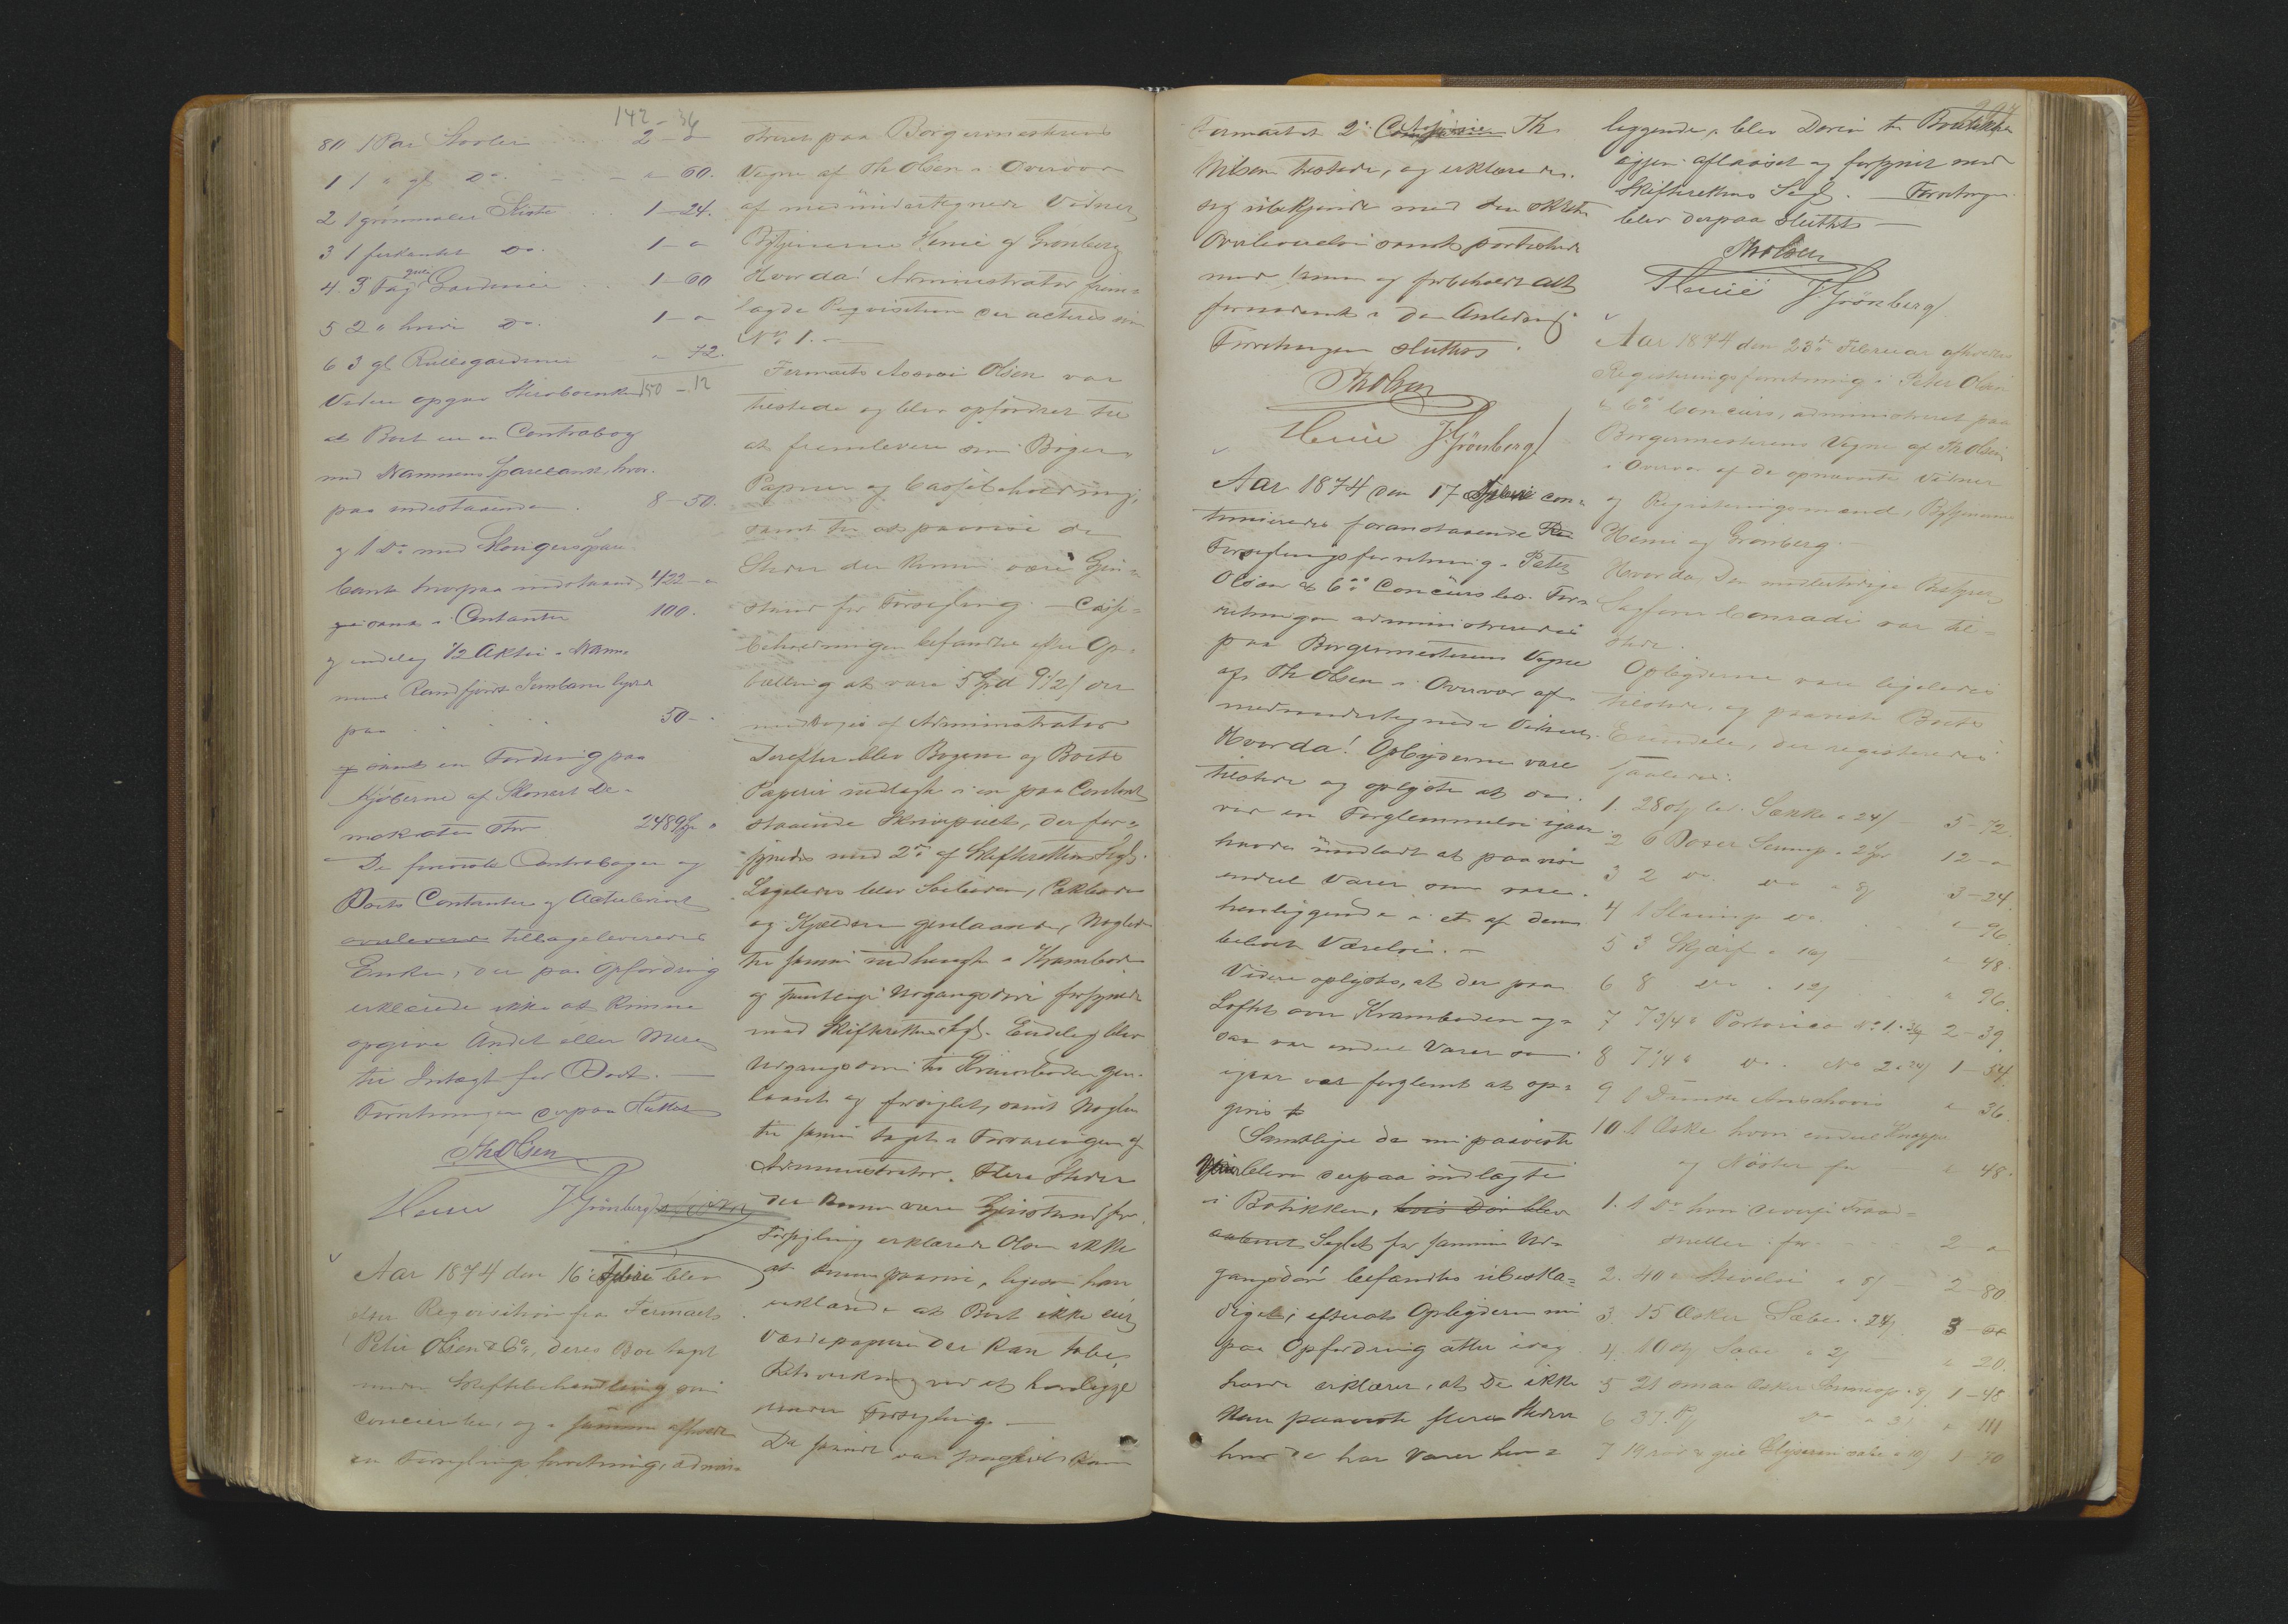 142 - 34
80 1 Par Stovler 2 - "
1 1 " gl. Do. " 60.
2 1 grønmalet Kiste 1 - 24.
3 1 firkantet Do. 1 - "
4. 3 Fag Gardiner 1 - 60
5 2 " hvide Do. 1 - "
6 3 gl. Rullegardiner " 72.
Videre opgav 150 - 12
at Boet en Contrabog
med Sparebank, hvor-
paa indestaaende 8 - 50.
og 1 Do med Spare
bank hvorpaa indestaaende 422 - "
samt i Contanter 100.
og endelig 1/2 Aktie i
Randsfjords Jernbane lydende
paa 50 -
samt en Fordring paa
Kjøberne af Skonnert De-
mokraten Stor 2489
De Contrabøger og
Boets Contanter og Actiebrevet
tilbageleveredes
Enken, der paa Opfordring
erklærede ikke at kunne
opgive Andet eller Mere
til Indtægt for Boet. -
Forretningen derpaa sluttet
Th Olsen
Henie J Grønberg
Aar 1874 den 16 Febr blev
efter Reqvisition fra Firmaets
Peter Olsen & Co, deres Boe tagt
under Skiftebehandling som
Concursbo, og i samme afholdt
en Forseglingsforretning, admini-
streret paa Borgermesterens
Vegne af Th Olsen i Overvær
af medundertegnede Vidner
Henie og Grønberg
Hvorda! Administrator frem-
lagde Reqvisition der acteres som
No 1. -
Firmaets Olsen var
tilstede og blev opfordret til
at fremlevere sine Bøger,
Papirer og Cassebeholdning,
samt til at paavise de
Steder der kunne være Gjen-
stand for Forsegling. - Casse-
beholdningen befandtes efter Op-
tælling at være 5 Spd 9 1/2 / der
af Administrator
Derefter blev Bøgerne og Boets
Papirer nedlagt i en paa Contoret
staaende Skrivpult, der for-
synedes med 2de af Skifterettens Segl.
Ligeledes blev Søeboden, Pakboden
og Kjælderen genlaasede, Nøglerne
til samme nedhængt i Kramboden
og samtlige Udgangsdøre forsynede
med Skifterettens Segl. Endelig blev
Udgangsdøren til Kramboden gen-
laaset og forseglet, samt Nøglen
til samme taget i Forvaring af
Administrator. Flere Steder
der kunne være Gjenstand for
Forsegling erklærede Olsen ikke
at kunne paavise, ligesom han
erklærede at Boet ikke eier
Værdipapirer der kan tabe
Retsvirkning ved at henligge
under Forsegling -
Da
Firmaets 2. Th
Nilsen tilstede, og erklærede
sig ubekjendt med den skete
Overleverelse samt
med samme og forbeholdt alt
fornødent i den Anledning
Forretningen sluttes.
Th Olsen
Henie J Grønberg
Aar 1874 den 17 Febr con-
tinueredes foranstaaende
Forseglingsforretning i Peter
Olsen & Co Concursbo. For-
retningen administreredes
paa Borgermesterens Vegne
af Th Olsen i Overvær af
medundertegnede Vidner.
Hvorda! Opbyderne vare
tilstede og oplyste at de
ved en Forglemmelse igaar
havde undladt at paavise
endeel Varer som vare
henliggende i et af dem
beboet Værelse. -
Videre oplystes, at der paa
Loftet over Kramboden og-
saa var endeel Varer som
igaar var forglemt at op-
givis
Samtlige da nu paaviste
Varer blev derpaa indlagte
i Butikken, hvis Dør blev
aabnet Seglet for samme Ud-
gangsdør befandtes ubeska-
diget, efterat Opbyderne nu
paa Opfordring atter idag
havde erklæret, at de ikke
kan paaviste flere Steder
hvor de har Varer hen-
liggende, blev Døren til Butikken
igjen aflaaset og forsynet med
Skifterettens Segl. - Forretningen
blev derpaa sluttet -
Th Olsen
Henie J Grønberg
Aar 1874 den 23de Februar afholdtes
Registreringsforretning i Peter Olsen
& Co Concurs, administreret paa
Borgermesterens Vegne af Th Olsen
i Overvær af de opnævnte Vidner
og Registreringsmænd,
Henie og Grønberg. -
Hvorda, Den midlertidige Bestyrer
Sagfører Conradi var til-
stede.
Opbyderne vare ligeledes
tilstede, og paaviste Boets
Eiendele, der registreredes
saaledes:
1. 28 Sække a 24/ 5 - 72.
2 6 Daaser Sennep a 2 12 - "
3 2 do. do a 8/ 3 - 24.
4 1 do. " 96.
5 3 Skjærf a 16/ " 48.
6 8 do a 12/ " 96.
7 7 3/4 " Portorico No 1. 2 - 39.
8 7 1/4 " do. No 2. 24/ 1 - 54.
9 1 " 36.
10 1 Æske hvori endeel Knappe
og Nøster for " 48.
1. 1 Do hvori diverse Traad-
sneller for 2 - "
2. 40 Stivelse a 8/ 2 - 80
3. 15 Æsker Sæbe a 24/ 3 -
4. 10 Sæbe a 2/ " 20.
5 21 smaa Æsker Sennep a 8/ 1 - 48
6 37 do a 3/ " 111
7 19 Glyserinsæbe a 10/ 1 - 70